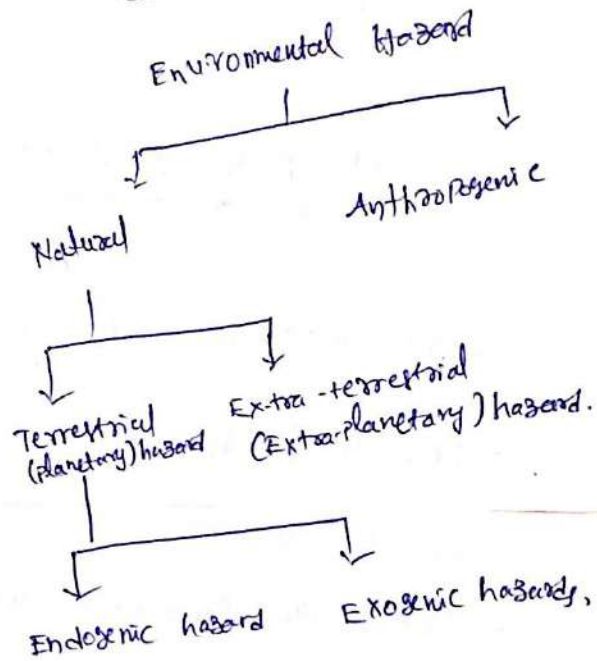 Environmental Hazard
Natural
Anthropogenic
Terrestrial
(planetary) hazard
Extra-terrestrial
(Extra-planetary) hazard.
Endogenic hazard
Exogenic hazards,